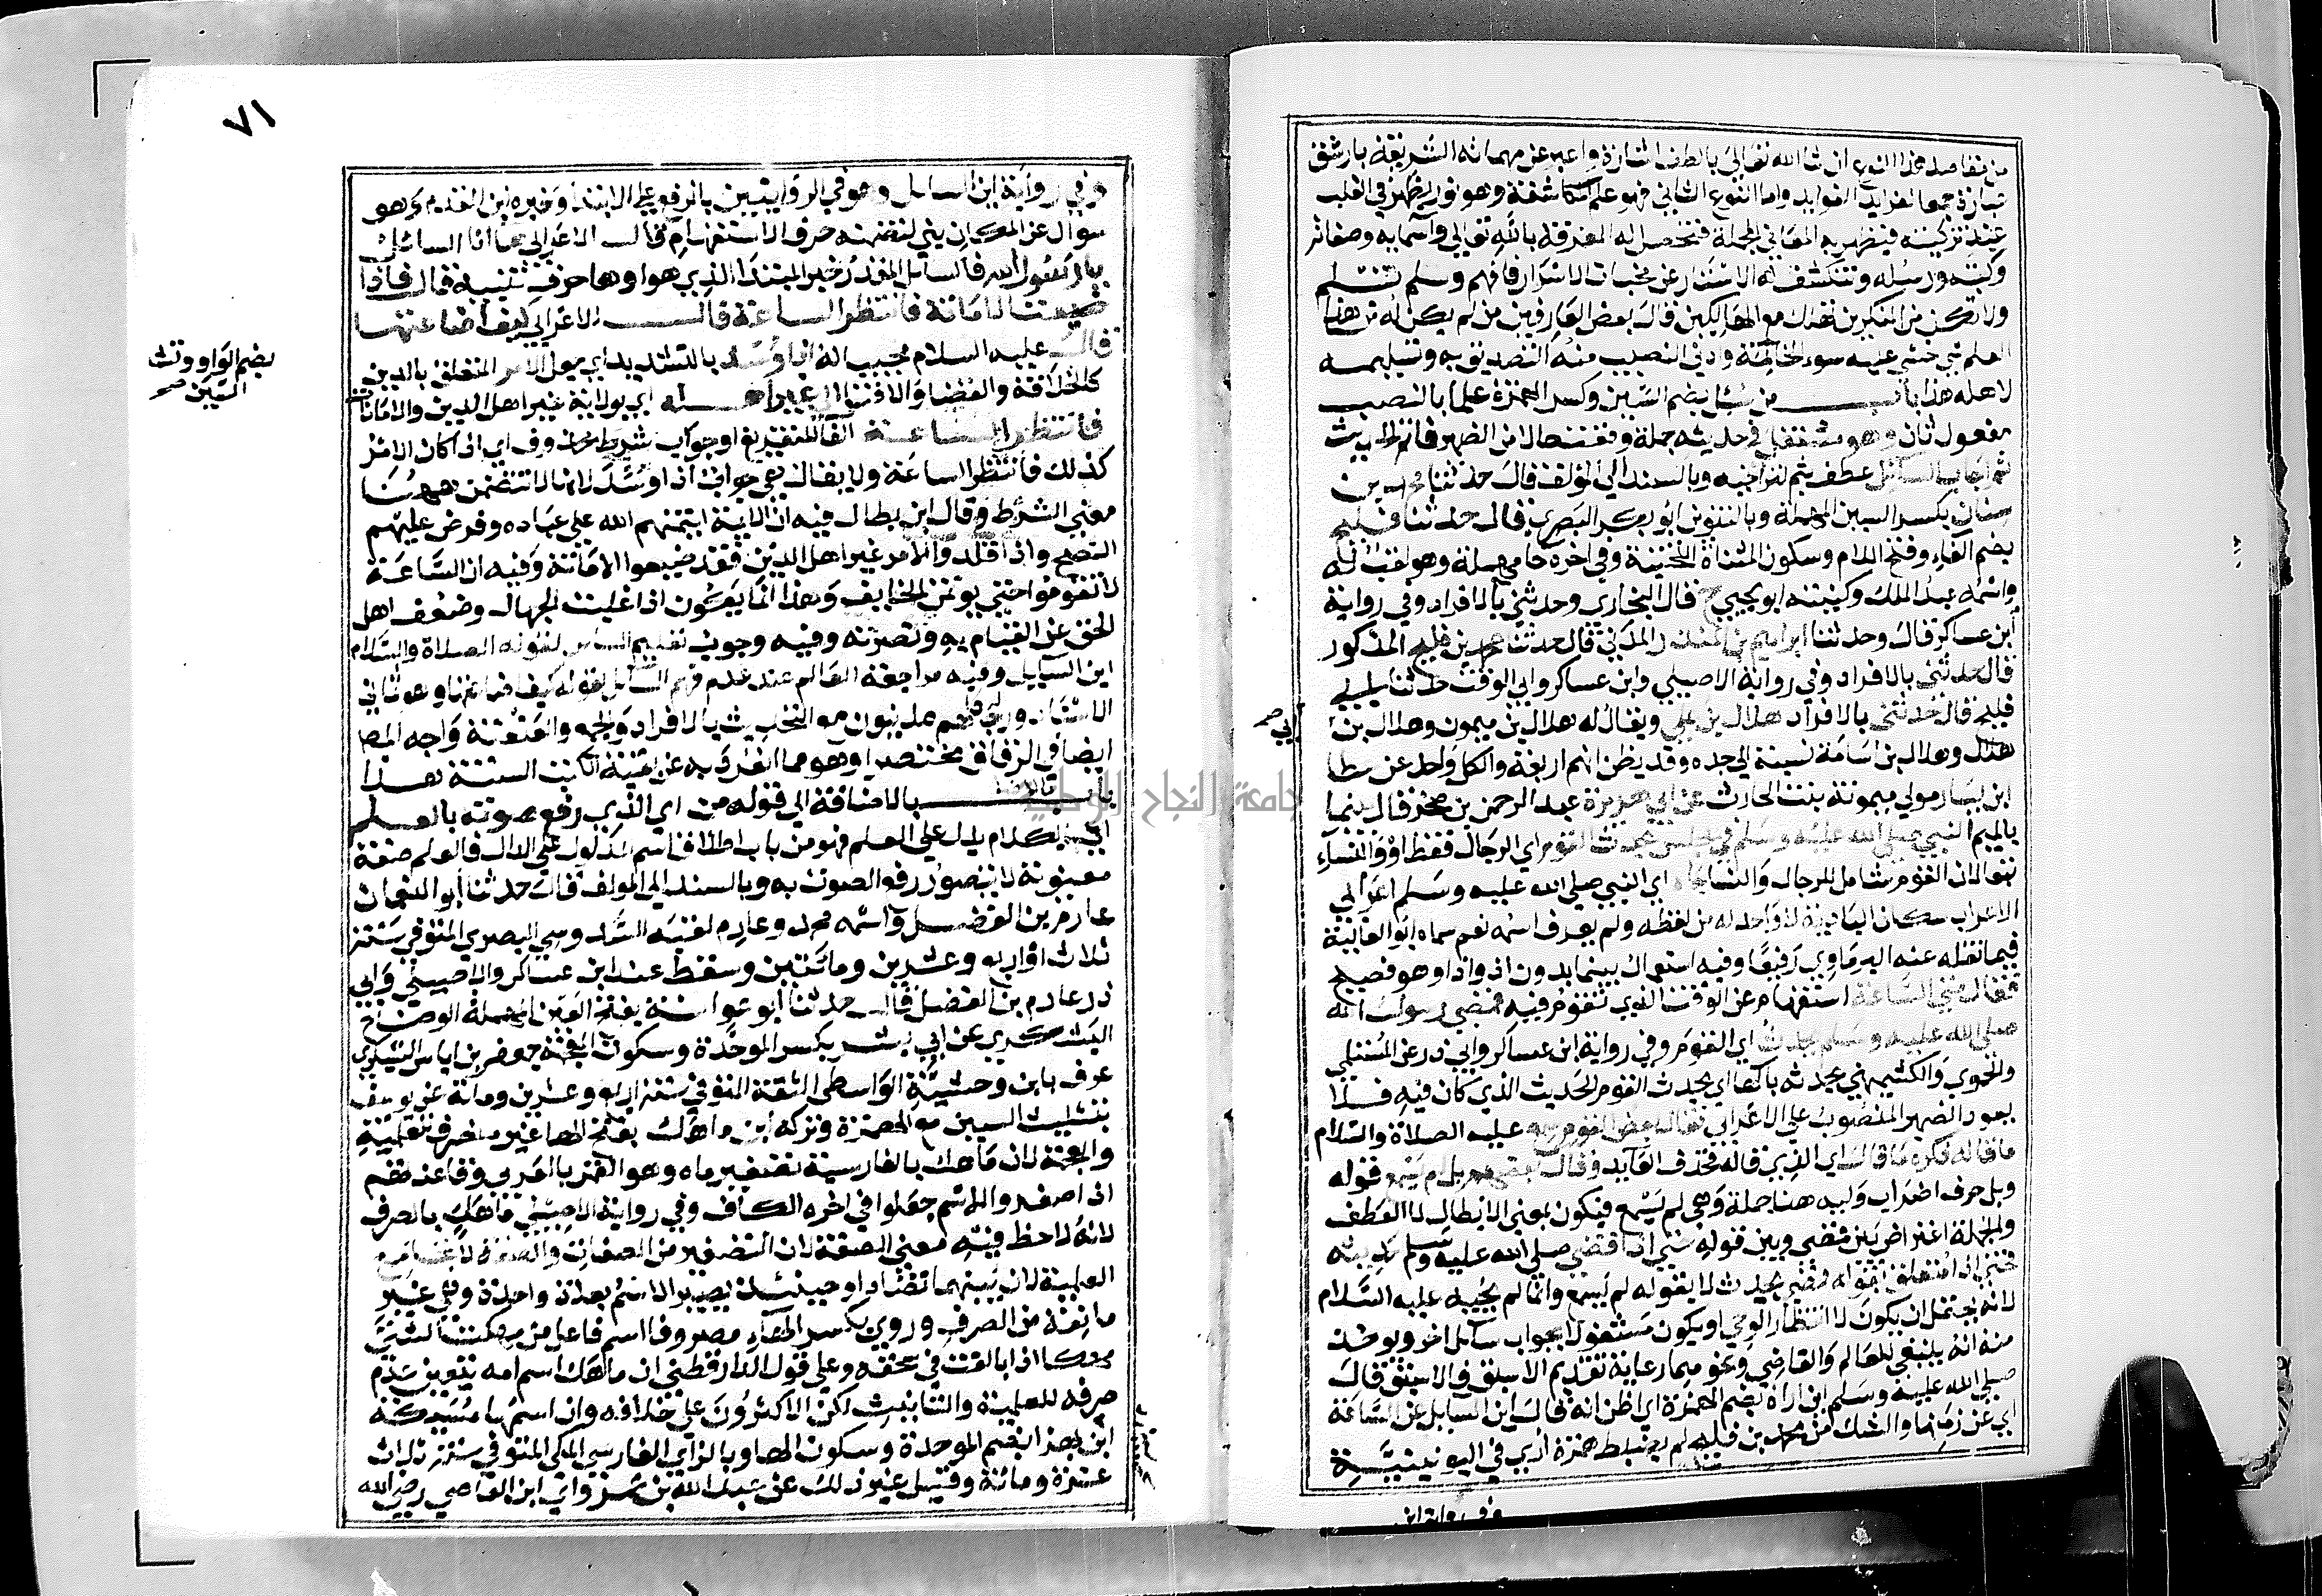 من تفاصيل هذا النوع ان شا الله تعالى بالطف اشارة واعبر عن مهماته الشريفة بارشق
عبارة جمعا لفرايد الفوايد واما النوع الثاني فهو علم المكاشفة وهو نور يظهر في القلب
عند تزكيته فيظهر به المعاني المجملة فتحصل له المعرفة بالله تعالى واسمايه وصفاته
وكتبه ورسله وتنكشف له الاستار عن مخبات الاسرار فافهم وسلم تسلم
ولا تكن من المنكرين تهلك مع الهالكين قال بعض العارفين من لم يكن له من هذا
العلم شي خشي عليه سوء الخاتمة وادنى النصيب منه التصديق به وتسليمه
لاهله هذا باب من سئل بضم السين وكسر الهمزة علما بالنصب
مفعول ثان وهو مشتغل في حديثه جملة وقعت حالا من الضمير فاتم الحديث
ثم اجاب السائل عطف بثم لتراخيه وبالسند الى المؤلف قال حدثنا محمد بن
سنان بكسر السين المهملة وبالنونين ابو بكر البصري قال حدثنا فليح
بضم الفاء وفتح اللام وسكون المثناة التحتية وفي اخره حا مهملة وهو لقب له
واسمه عبد الملك وكنيته ابو يحيى ح قال البخاري وحدثني بالافراد وفي رواية
ابن عساكر قال وحدثنا ابراهيم بن المنذر المدني قال حدثنا محمد بن فليح المذكور
قال حدثني بالافراد وفي رواية الاصيلي وابن عساكر وابي الوقت حدثنا ابي
فليح قال حدثني بالافراد هلال بن علي ويقال له هلال بن ميمون وهلال بن
ابي صح
هلال وهلال بن اسامة نسبة الى جده وقد يظن انهم اربعة والكل واحد عن عطا
ابن يسار مولى ميمونة بنت الحارث عن ابي هريرة عبد الرحمن بن صخر قال بينما
بالميم النبي صلى الله عليه وسلم في مجلس يحدث القوم اي الرجال فقط او والنساء
تبعا لان القوم شامل للرجال والنساء جاه اي النبي صلى الله عليه وسلم اعرابي
الاعراب سكان البادية لا واحد له من لفظه ولم يعرف اسمه نعم سماه ابو العالية
فيما نقله عنه البرماوي رفيعا وفيه استعمال بينما بدون اذ واذا وهو فصيح
فقال متى الساعة استفهام عن الوقت الذي تقوم فيه فمضى رسول الله
صلى الله عليه وسلم يحدث اي القوم وفي رواية ابن عساكر وابي ذر عن المستملي
والحموي والكشميهني يحدثه بالها اي يحدث القوم الحديث الذي كان فيه فلا
يعود الضمير المنصوب على الاعرابي فقال بعض القوم سمع عليه الصلاة والسلام
ما قاله فكره ما قال اي الذي قاله فحذف العايد وقال بعضهم بل لم يسمع قوله
وبل حرف اضراب وليه هنا جملة وهي لم يسمع فيكون بمعنى الابطال لا العطف
والجملة اعتراض بين فمضى وبين قوله حتى اذا قضى صلى الله عليه وسلم حديثه
فحتى اذا متعلق بقوله فمضى يحدث لا بقوله لم يسمع وانما لم يجبه عليه السلام
لانه يحتمل ان يكون لانتظار الوحي او يكون مشغولا بجواب سائل اخر ويوخذ
منه انه ينبغي للعالم والقاضي ونحوهما رعاية تقديم الاسبق فالاسبق قال
صلى الله عليه وسلم اين اراه بضم الهمزة اي اظن انه قال اين السايل عن الساعة
اي عن زمانها والشك من محمد بن فليح لم يضبط همزة اري في اليونينية
وفي رواية اين
٧١
وفي رواية اين السائل وهو في الروايتين بالرفع على الابتدا وخبره اين المقدم وهو
سوال عن المكان بني لتضمنه حرف الاستفهام قال الاعرابي ها انا السائل
يا رسول الله فالسائل المقدر خبر المبتدا الذي هو انا وها حرف تنبيه قال فاذا
ضيعت الامانة فانتظر الساعة قال الاعرابي كيف اضاعتها
قال عليه السلام مجيبا له اذا وسد بالتشديد اي جعل الامر المتعلق بالدين
بضم الواو وتشد
السين صح
كالخلافة والقضا والافتا الى غير اهله اي بولاية غير اهل الدين والامانات
فانتظر الساعة الفا للتفريع او جواب شرط محذوف اي اذا كان الامر
كذلك فانتظر الساعة ولا يقال هي جواب اذا وسد لانها لا تتضمن ههنا
معنى الشرط وقال ابن بطال فيه ان الايمة ايتمنهم الله على عباده وفرض عليهم
النصح واذا قلدوا الامر غير اهل الدين فقد ضيعوا الامانة وفيه ان الساعة
لا تقوم حتى يوتمن الخاين وهذا انما يكون اذا غلبت الجهال وضعف اهل
الحق عن القيام به ونصرته وفيه وجوب تعليم السائل لقوله الصلاة والسلام
اين السايل وفيه مراجعة العالم عند عدم فهم السائل لقوله كيف اضاعتها وهو ثماني
الاسناد ورجاله كلهم مدنيون مع التحديث بالافراد والجمع والعنعنة واخرجه المص
ايضا في الرقاق مختصرا وهو مما انفرد به عن بقية الكتب الستة هذا
باب بالاضافة الى قوله من اي الذي رفع صوته بالعلم
اي بكلام يدل على العلم فهو من باب اطلاق اسم المدلول على الدال فالعلم صفة
معنوية لا يتصور رفع الصوت به وبالسند الى المولف قال حدثنا ابو النعمان
عارم بن الفضل واسمه محمد وعارم لقبه السدوسي البصري المتوفى سنة
ثلاث او اربع وعشرين ومائتين وسقط عند ابن عساكر والاصيلي وابي
ذر عارم بن الفضل قال حدثنا ابو عوانة بفتح العين المهملة الوضاح
اليشكري عن ابي بشر بكسر الموحدة وسكون المعجمة جعفر بن اياس اليشكري
عرف بابن وحشية الواسطي الثقة المتوفي سنة اربع وعشرين ومائة عن يوسف
بتثليث السين مع الهمزة وتركه ابن ماهك بفتح الها غير منصرف للعلمية
والعجمة لان ماهك بالفارسية تصغير ماه وهو القمر بالعربي وقاعدتهم
اذا صغروا الاسم جعلوا في اخره الكاف وفي رواية الاصيلي ماهك بالصرف
لانه لاحظ فيه معنى الصفة لان التصغير من الصفات والصفة لا تجامع
العلمية لان بينهما تضادا وحينئذ يصير الاسم بعلة واحدة وهي غير
مانعة من الصرف وروي بكسر الهاء مصروفا اسم فاعل من مهكت الشي
مهكا اذا بالغت في سحقه وعلى قول الدارقطني ان ماهك اسم امه يتعين عدم
صرفه للعلمية والتانيث لكن الاكثرون على خلافه وان اسمها مسيكة
ابن بهز ابضم الموحدة وسكون الها وبالزاي الفارسي المكي المتوفي سنة ثلاث
عشرة ومائة وقيل غير ذلك عن عبد الله بن عمرو اي ابن العاصي رضي الله
جامعة النجاح الوطنية